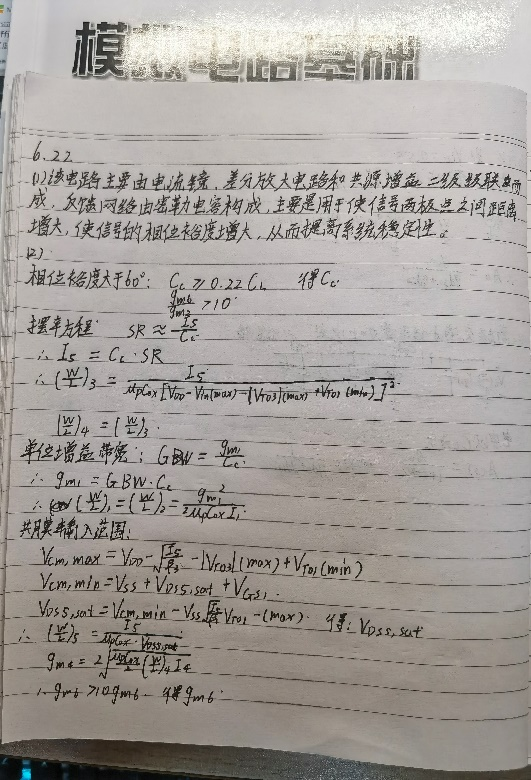 模拟电路基础
6.22
(1)该电路主要由电流镜、差分放大电路和共源增益二级级联而
成,反馈网络由密勒电容构成,主要是用于使信号两极点之间距离
增大,使信号的相位裕度增大,从而提高系统稳定性。
(2)
相位裕度大于60°: Cc ≥ 0.22 CL 得Cc
gm6/gm2 > 10
摆率方程: SR ≈ I5/Cc
∴ I5 = Cc·SR
∴ (W/L)3 = I5/μpCox[VDD-Vin(max)-|VT03|(max)+VT01(min)]²
(W/L)4 = (W/L)3.
单位增益带宽: GBW = gm1/Cc
∴ gm1 = GBW·Cc
∴ (W/L)1 = (W/L)2 = gm1²/2μpCoxI1
共模输入范围:
Vcm,max = VDD - √(I5/β3) - |VT03|(max) + VT01(min)
Vcm,min = VSS + VDS5,sat + VGS1.
VDS5,sat = Vcm,min - VSS √ VT01-(max). 得: VDS5,sat
∴ (W/L)5 = I5/μpCox·VDS5,sat
gm4 = 2√(μpCox/2 (W/L)4 I4)
∴ gm6 > 10gm6 得gm6.